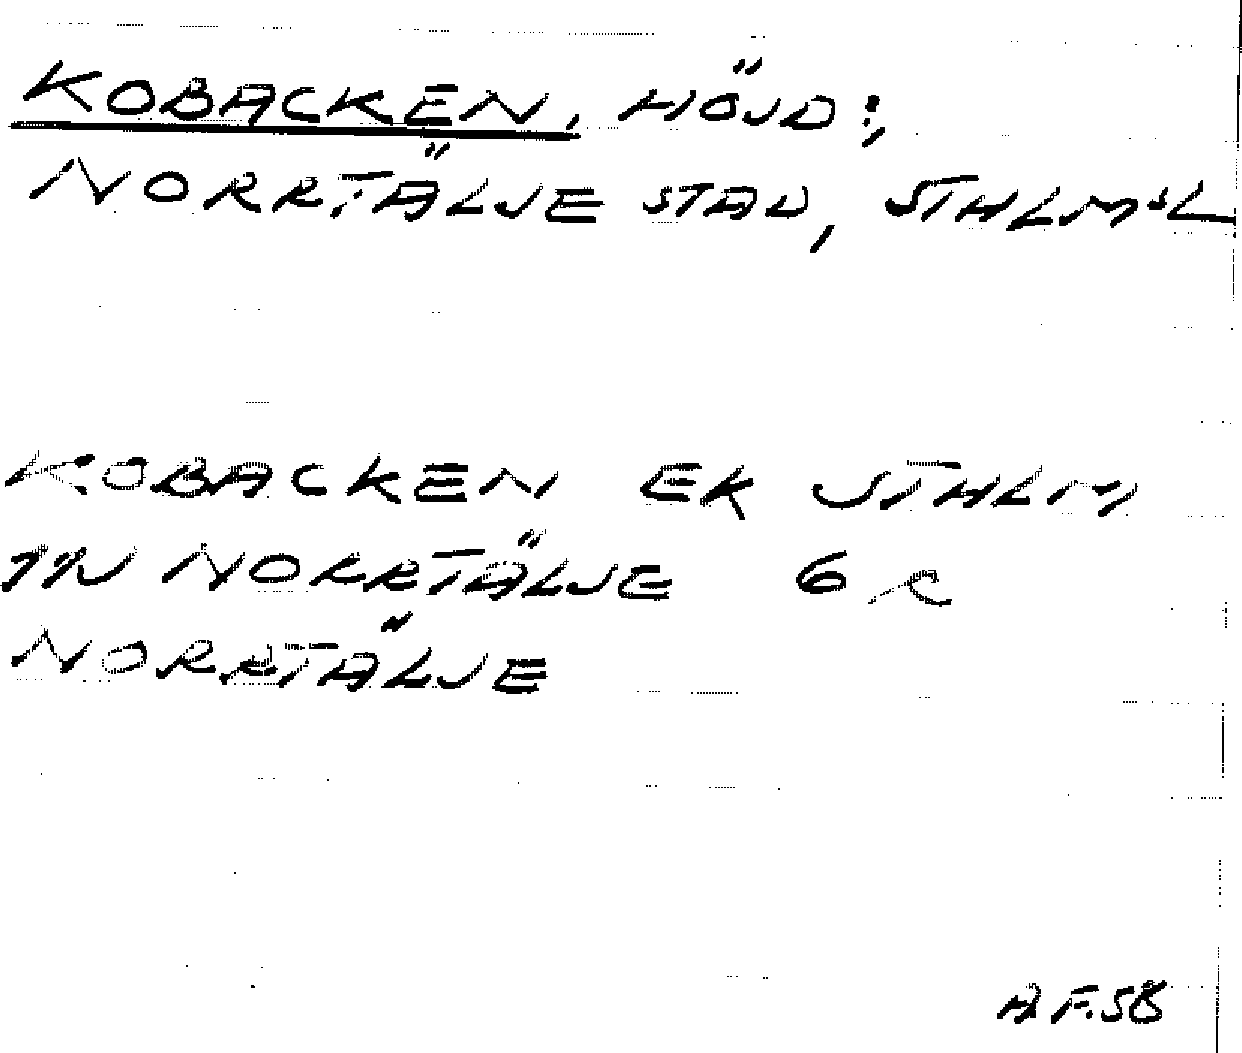 KOBACKEN, HÖJD;
NORRTÄLJE STAD, STHLMSL
KOBACKEN EK STHLM
NORRTÄLJE 6
NORRTÄLJE
A.F.58